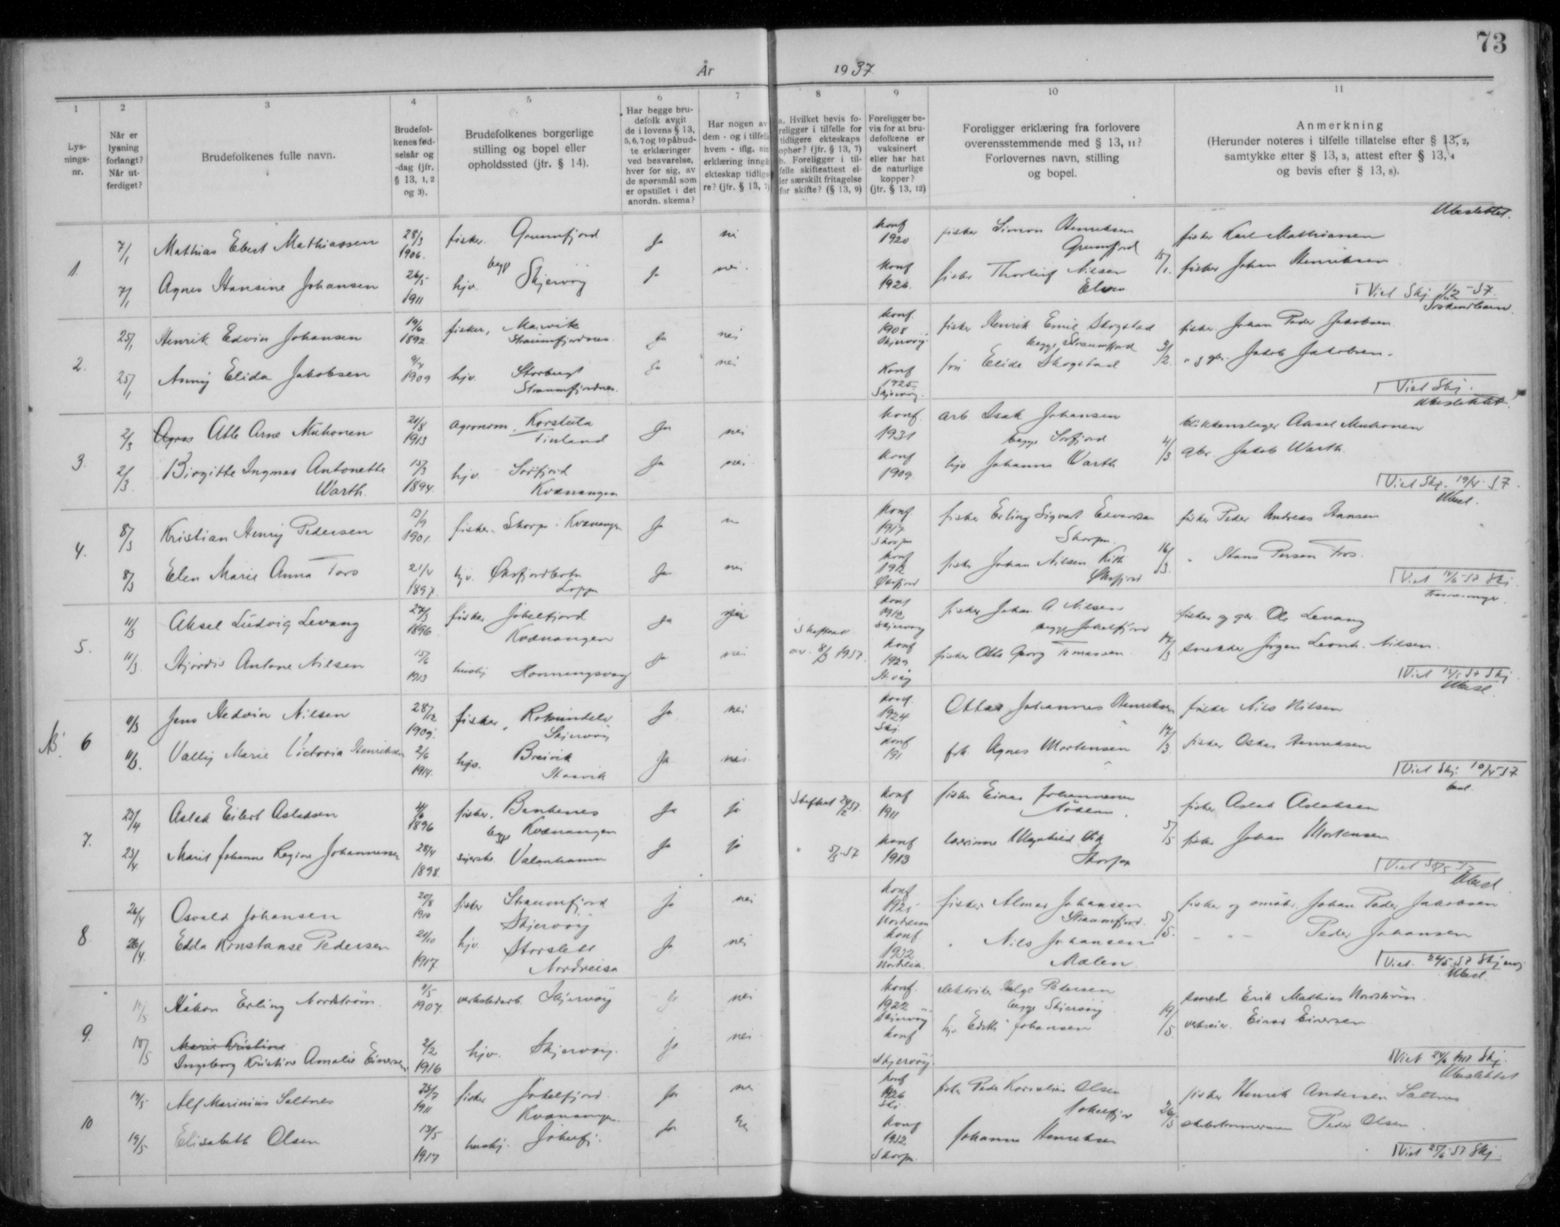 73
År 1937
1 2 3 4 5 6 7 8 9 10 11
Lys-
nings-
nr.
Når er
lysning
forlangt?
Når ut-
ferdiget?
Brudefolkenes fulle navn.
Brudefol-
kenes fød-
selsår og
-dag (jfr.
§ 13, 1, 2
og 3).
Brudefolkenes borgerlige
stilling og bopel eller
opholdssted (jfr. § 14).
Har begge bru-
defolk avgit
de i lovens § 13,
5, 6, 7 og 10 påbud-
te erklæringer
ved besvarelse,
hver for sig, av
de spørsmål som
er opstillet i det
anordn. skema?
Har nogen av
dem - og i tilfelle
hvem - iflg. sin
erklæring inngå
ekteskap tidlige
re? (jfr. § 13, 7)
a. Hvilket bevis fo-
religger i tilfelle for
tidligere ekteskaps
ophør? (jfr. § 13, 7)
b. Foreligger i til-
felle skifteattest el-
ler særskilt fritagelse
for skifte? (§ 13, 9)
Foreligger be-
vis for at bru-
defolkene er
vaksinert
eller har hat
de naturlige
kopper?
(jfr. § 13, 12)
Foreligger erklæring fra forlovere
overensstemmende med § 13, 11?
Forlovernes navn, stilling
og bopel.
Anmerkning
(Herunder noteres i tilfelle tillatelse efter § 13, 2,
samtykke etter § 13, 3, attest efter § 13, 4
og bevis efter § 13, 8).
Ubeslektet.
1. 7/1 Mathias Ebert Mathiassen 28/3 1906. fisker. Grunnfjord ja nei konf 1920 fisker Simon Henriksen Grunnfjord fisker Karl Mathiassen
7/1 Agnes Hansine Johansen 26/5 1911 hjv. begge Skjervøy ja nei. konf 1926 fisker Thorleif Nilsen 15/1. fisker Johan Henriksen
Viet Skj. 1/2-37.
Søskendbarn.
2. 25/1 Henrik Edvin Johansen 19/6 1892 fisker, Maivik Straumfjordnes. ja nei konf 1908 Skjervøy fisker Henrik Emil Skogstad begge Straumfjord fisker Johan Peder Jakobsen
25/1 Anny Elida Jakobsen 1909 hjv. Storbugt Straumfjordnes. ja nei Konf 1925 Skjervøy. fru Elide Skogstad 3/2. Jakob Jakobsen.
Viet Skj.
Ubeslektet.
3. 2/3 Atle Arne Muhonen 21/8 1913 agronom. Korstuta Finland ja nei konf. 1931 arb Isak Johansen begge Sørfjord blikkenslager Aksel Muhonen
2/3. Birgitte Ingmar Antonette Warth. 15/3 1894. hjv. Sørfjord Kvænangen ja nei. konf 1909. hjv Johanne Warth 4/3 gbr Jakob Warth.
Viet Skj. 19/4-37.
Ubesl.
4. 8/3 Kristian Henrij Pedersen 13/9 1901. fisker. Skorpa i Kvænangen ja konf 1917 Skorpa fisker Erling Sigvart Edvardsen Skorpa. fisker Peder Andreas Hansen
8/3 Elen Marie Anna Fors 21/4 1897. hjv. Øksfjordbotn Loppa ja nei konf 1912 Øksfjord fisker Johan Nilsen Øksfjord 16/3. Hans Persen Fors.
Viet 14/6-37 Skj.
5. 11/3 Aksel Ludvig Levang 27/3 1896 fisker Jøkelfjord Kvænangen ja konf 1912 Skjervøy fisker Johan A Nilsen begge Jøkelfjord fisker og gbr. Ole Levang
11/3. Hjørdis Antone Nilsen 15/6 1913 hushj Honningsvåg ja nei. Skiftet av 8/3 1937. konf 1929 fisker Otto Georg Tomassen 17/3 snekker Jørgen Leonh. Nilsen.
Skj
Ubesl.
6 11/3 Jens Hedvin Nilsen 28/12 1909. fisker, Skjervøy ja nei konf. 1924 Skj. Ottar Johannes Henriksen fisker Nils Nilsen
11/3. Vally Marie Victoria Henriksen 2/6 1914. hjv. Breivik ja nei konf 191 frk Agnes Mortensen 17/3. fisker Oskar
Viet Skj. 10/4-37
7. 23/4 Aslak Eilert Aslaksen 1896 fisker. begge Kvænangen ja ja Skiftet konf 1911 fisker Einar Johannesen fisker Aslak Aslaksen
23/4 Marit Johanne Regine Johannesen 28/4 1898 Valanhamn ja ja 5/5-37 konf 1913 lærerinne Magnhild Skorpa 5/5 fisker Johan Mortensen
Ubesl.
8. 26/4 Osvald Johansen 20/8 1910 fisker Straumfjord Skjervøy ja nei konf 1925 fisker Almar Johansen Straumfjord. 5/5. fisker og småbr. Johan Peder Jakobsen
26/4. Edda Konstanse Pedersen 21/10 1917. hjv. Storslett Nordreisa ja nei konf 1932 Nordreisa. Nils Johansen Peder Johansen
Viet. 24/5 37 Skjervøy
Ubesl.
9. 11/5 Håkon Erling Nordstrøm. 9/5 1907. verkstedarb. Skjervøy ja nei konf. 1922 Skjervøy Helge Petersen begge Skjervøy smed Erik Mathias Nordstrøm.
18/5 Marie Kristine
Ingeborg Kristine Amalie Einersen 2/2 1916 hjv. Skjervøy. ja nei konf Skjervøy. hjv Edith Johansen 19/5 Einar Einersen
Viet Skj.
Ubeslektet
10 19/5 Alf Marinius Saltnes 1911 fisker Jøkelfjord Kvænangen ja nei konf 1926 Skj. Peder Kornelius Olsen Jøkelfjord 26/5 fisker Henrik Andersen Saltnes
19/5 Elisabeth Olsen 13/5 1917 hushj. Jøkelfj. ja nei konf 1932 Skorpa Johanne Henriksen Peder Olsen.
Viet 25/6 37 Skj.